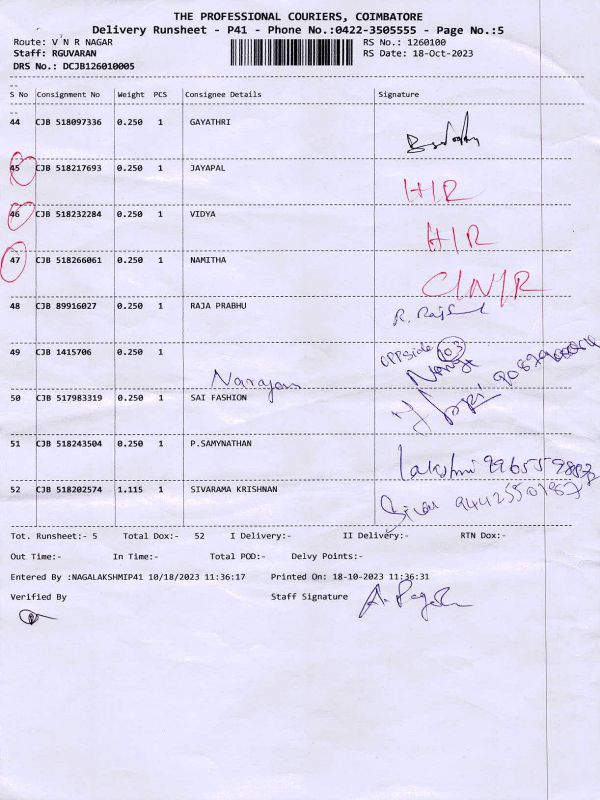 THE PROFESSIONAL COURIERS, COIMBATORE
Delivery Runsheet - P41 - Phone No.:0422-3505555 - Page No.:5
Route: V N R NAGAR RS No.: 1260100
Staff: RGUVARAN RS Date: 18-Oct-2023
DRS No.: DCJB126010005
S No Consignment No Weight PCS Consignee Details Signature
44 CJB 518097336 0.250 1 GAYATHRI
45 CJB 518217693 0.250 1 JAYAPAL H/R
46 CJB 518232284 0.250 1 VIDYA H/R
47 CJB 518266061 0.250 1 NAMITHA C/N/R
48 CJB 89916027 0.250 1 RAJA PRABHU
49 CJB 1415706 0.250 1 oppside 103
Narayan
50 CJB 517983319 0.250 1 SAI FASHION
51 CJB 518243504 0.250 1 P.SAMYNATHAN Lakshmi
52 CJB 518202574 1.115 1 SIVARAMA KRISHNAN
Tot. Runsheet:- 5 Total Dox:- 52 I Delivery:- II Delivery:- RTN Dox:-
Out Time:- In Time:- Total POD:- Delvy Points:-
Entered By :NAGALAKSHMIP41 10/18/2023 11:36:17 Printed On: 18-10-2023 11:36:31
Verified By Staff Signature